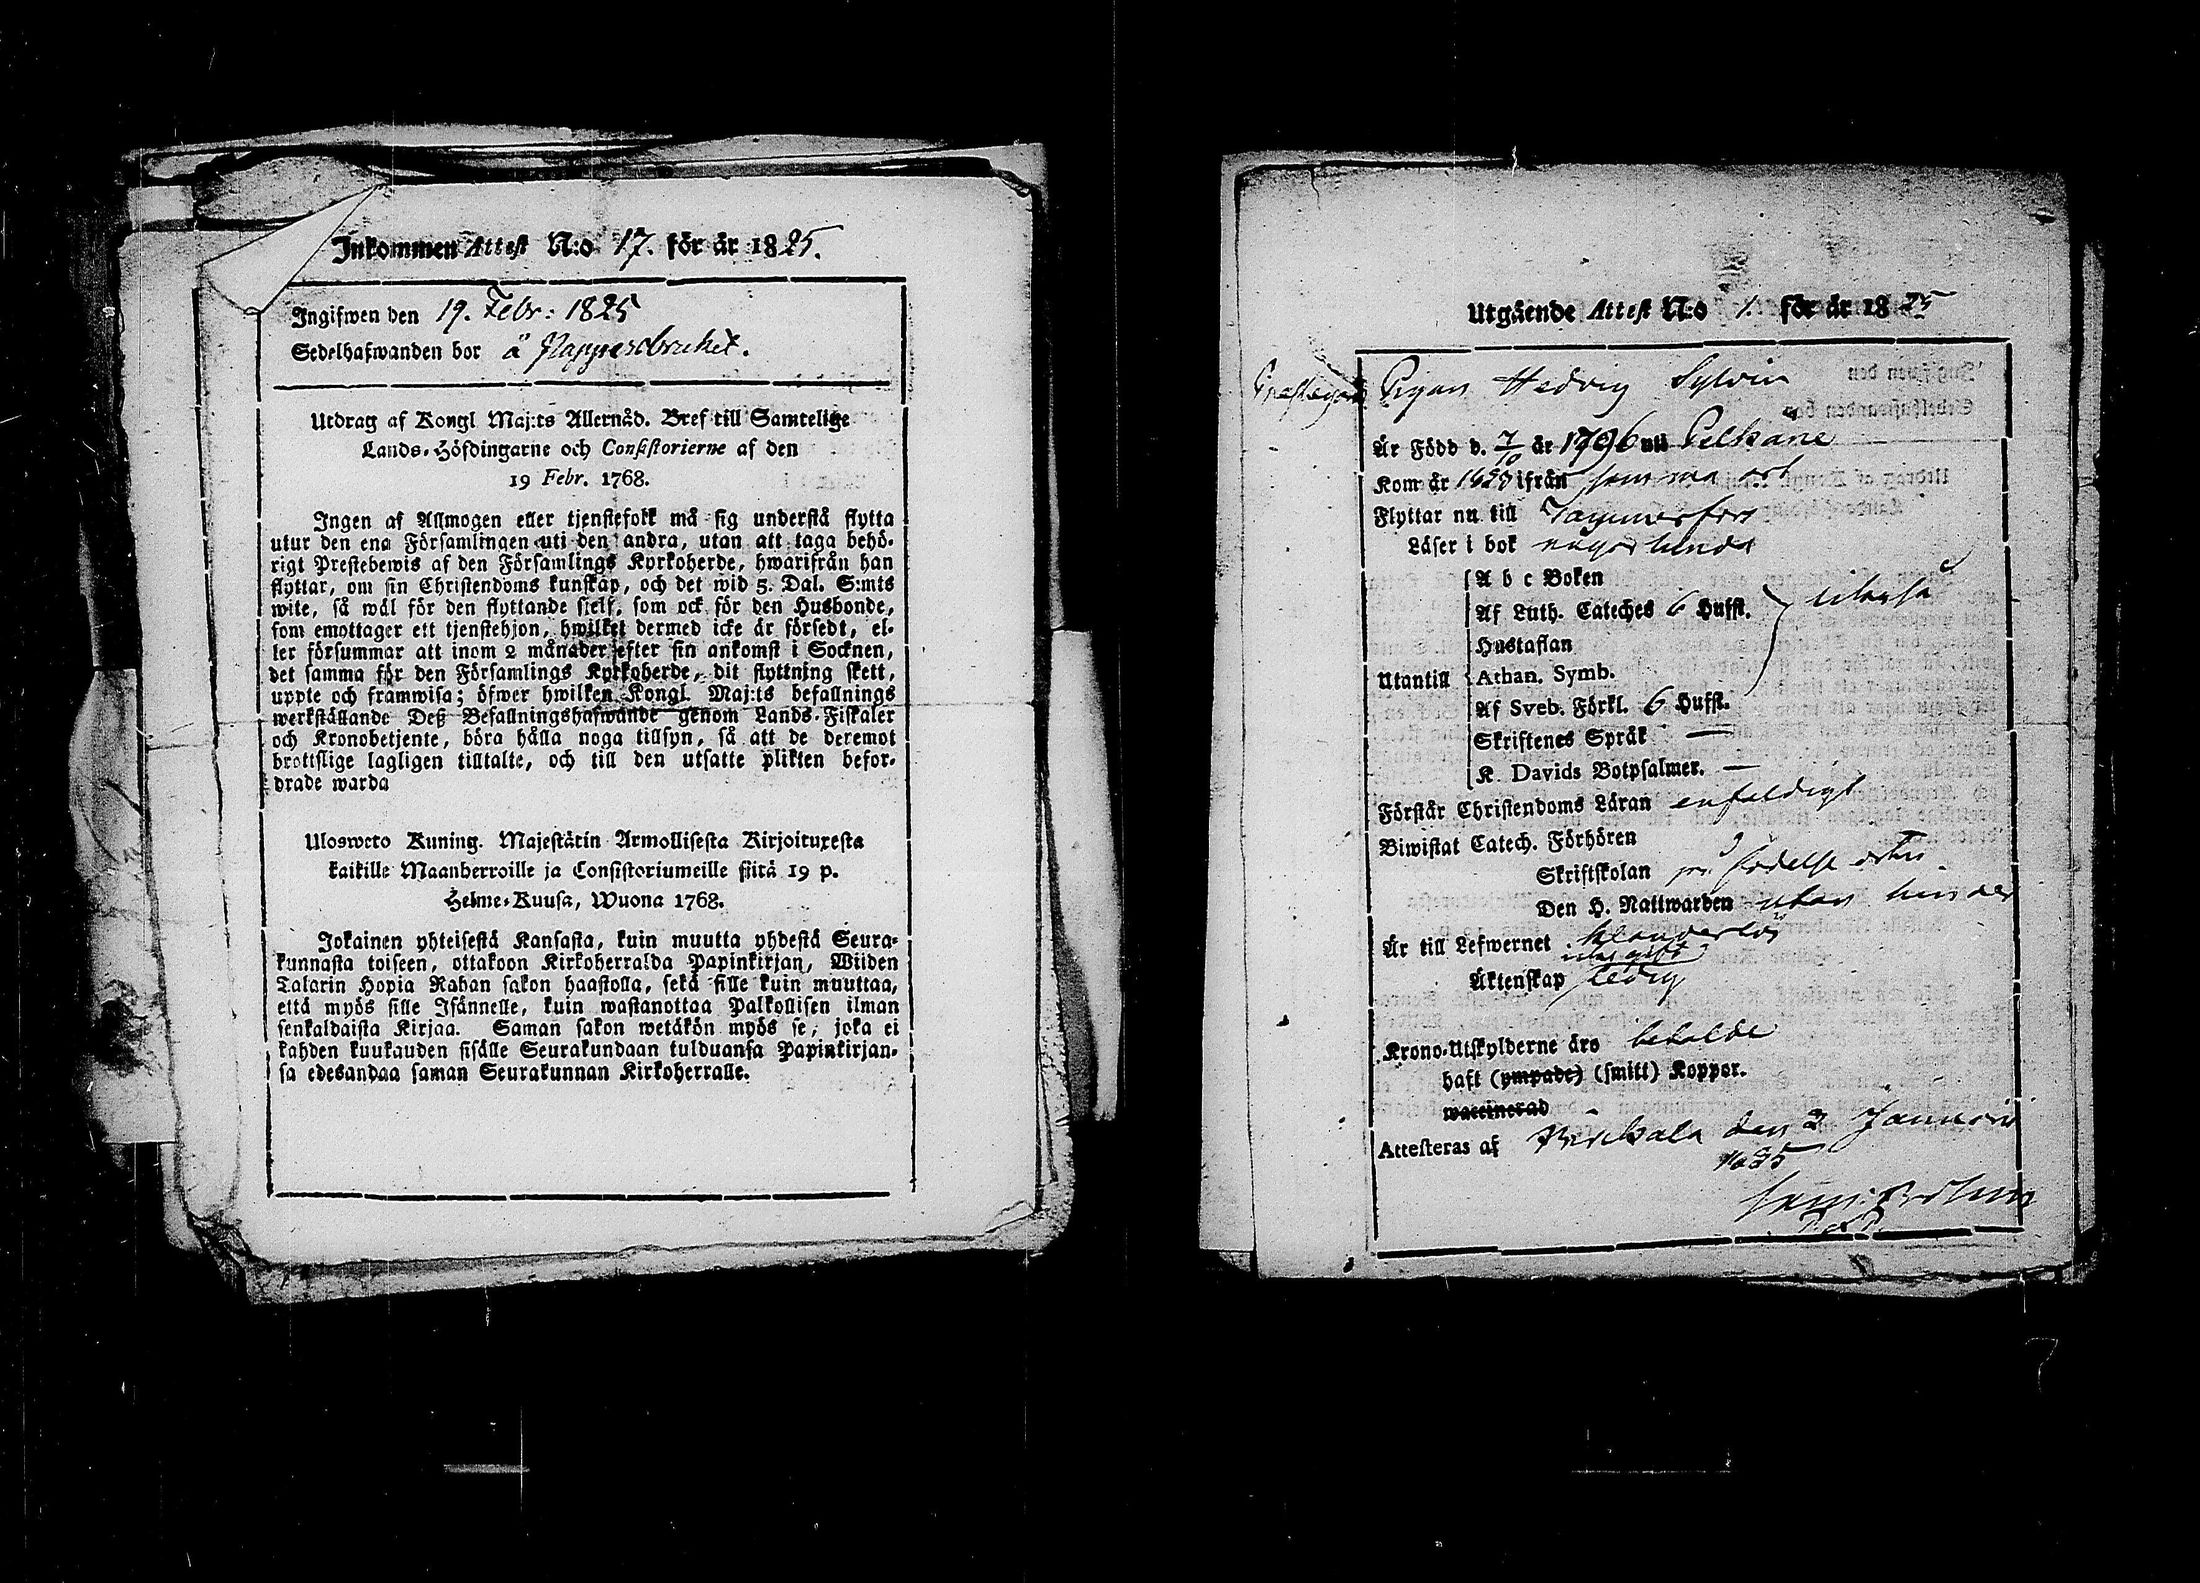 Inkommen Attest N:o 17. för år 1825.
Ingifwen den 19. Febr: 1825
Sedelhafwanden bor å Pappersbruket.
Utdrag af Kongl Maj:ts Allernåd. Bref till Samtelige
Lands-Höfdingarne och Consistorierne af den
19 Febr. 1768.
Ingen af Allmogen eller tjenstefolk må sig understå flytta
utur den ena Församlingen uti den andra, utan att taga behö-
rigt Prestebewis af den Församlings Kyrkoherde, hwarifrån han
flyttar, om sin Christendoms kunskap, och det wid 5. Dal. S:mts
wite, så wäl för den flyttande sjelf, som ock för den Husbonde,
som emottager ett tjenstehjon, hwilket dermed icke är försedt, el-
ler försummar att inom 2 månader efter sin ankomst i Socknen,
det samma för den Församlings Kyrkoherde, dit flyttning skett,
uppte och framwisa; öfwer hwilken Kongl. Maj:ts befallnings
werkställande Deß Befallningshafwande genom Lands-Fiskaler
och Kronobetjente, böra hålla noga tillsyn, så att de deremot
brottslige lagligen tilltalte, och till den utsatte plikten befor-
drade warda
Ulosweto Kuning. Majestätin Armollisesta Kirjoituxesta
kaikille Maanherroille ja Consistoriumeille siitä 19 p.
Helme-Kuusa, Wuona 1768.
Jokainen yhteisestä Kansasta, kuin muutta yhdestä Seura-
kunnasta toiseen, ottakoon Kirkoherralda Papinkirjan, Wiiden
Talarin Hopia Rahan sakon haastolla, sekä sille kuin muuttaa,
että myös sille Isännelle, kuin wastanottaa Palkollisen ilman
senkaldaista Kirjaa. Saman sakon wetäkön myös se, joka ei
kahden kuukauden sisälle Seurakundaan tulduansa Papinkirjan-
sa edesandaa saman Seurakunnan Kirkoherralle.
Utgående Attest N:o 1. för år 1825
Pigan Hedvig Sylvin
Är Född d. 7/10 år 1796 uti Pelkäne
Kom år ifrån samma ort
Flyttar nu till Tammerfors
Läser i bok någorlunda
A b c Boken
Af Luth. Cateches 6 Hufst. likaså
Hustaflan
Utantill Athan. Symb.
Af Sveb. Förkl. 6 Hufst.
Skriftenes Språk —
K. Davids Botpsalmer. —
Förstår Christendoms Läran enfaldigt
Biwistat Catech. Förhören
Skriftskolan på födelse orten
Den H. Nattwarden utan hinder
Är till Lefwernet klanderlös
Äktenskap ledig
Krono-Utskylderne äro betalde
haft (ympade) (smitt) Koppor.
waccinerad
Attesteras af Birkala den 3 Januarii
1825